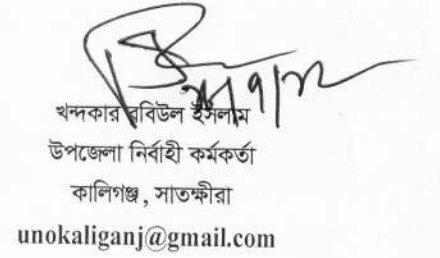 খন্দকার রবিউল ইসলাম
উপজেলা নির্বাহী কর্মকর্তা
কালিগঞ্জ, সাতক্ষীরা
unokaliganj@gmail.com